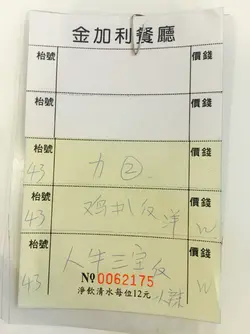 金加利餐廳
枱號 價錢
枱號 價錢
枱號 價錢
43 力 ②
枱號 價錢
43 鸡扒反 洋 W
枱號 價錢
43 人牛三宝反 小辣 W
№ 0062175
淨飲清水每位12元